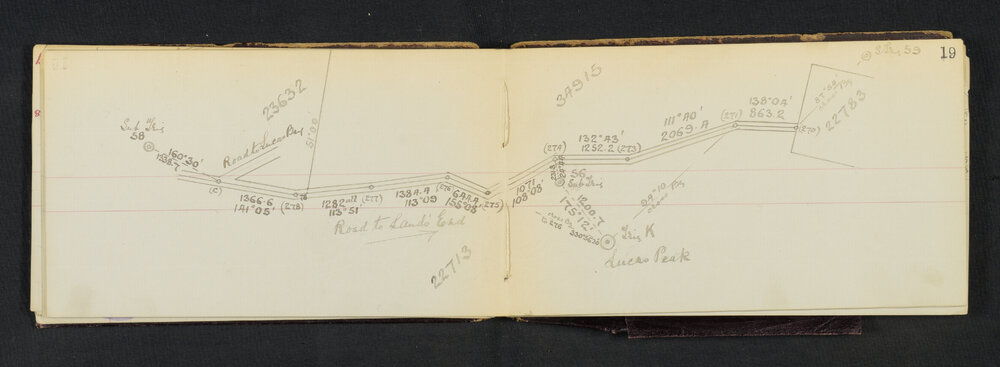 19
Sub Trig
58
160°30'
Road to Lucas Bay
23632
(C)
1366.6
141°05'
(278)
1282
113°51'
(277)
1384.4
113°09
(276)
644.2
155°08'
(275)
Road to Land's End
22713
34915
1071
108°08'
(274)
132°43'
1252.2
(273)
56
Sub Trig
1200.7
175°12'
to 276
Trig K
Lucas Peak
111°40'
2069.4
(271)
138°04'
863.2
(270)
22783
Trig 99